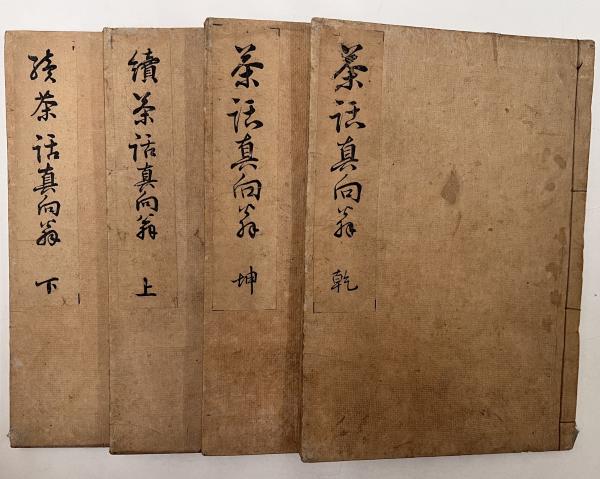 茶話真向翁 乾
茶話真向翁 坤
續茶話真向翁 上
續茶話真向翁 下